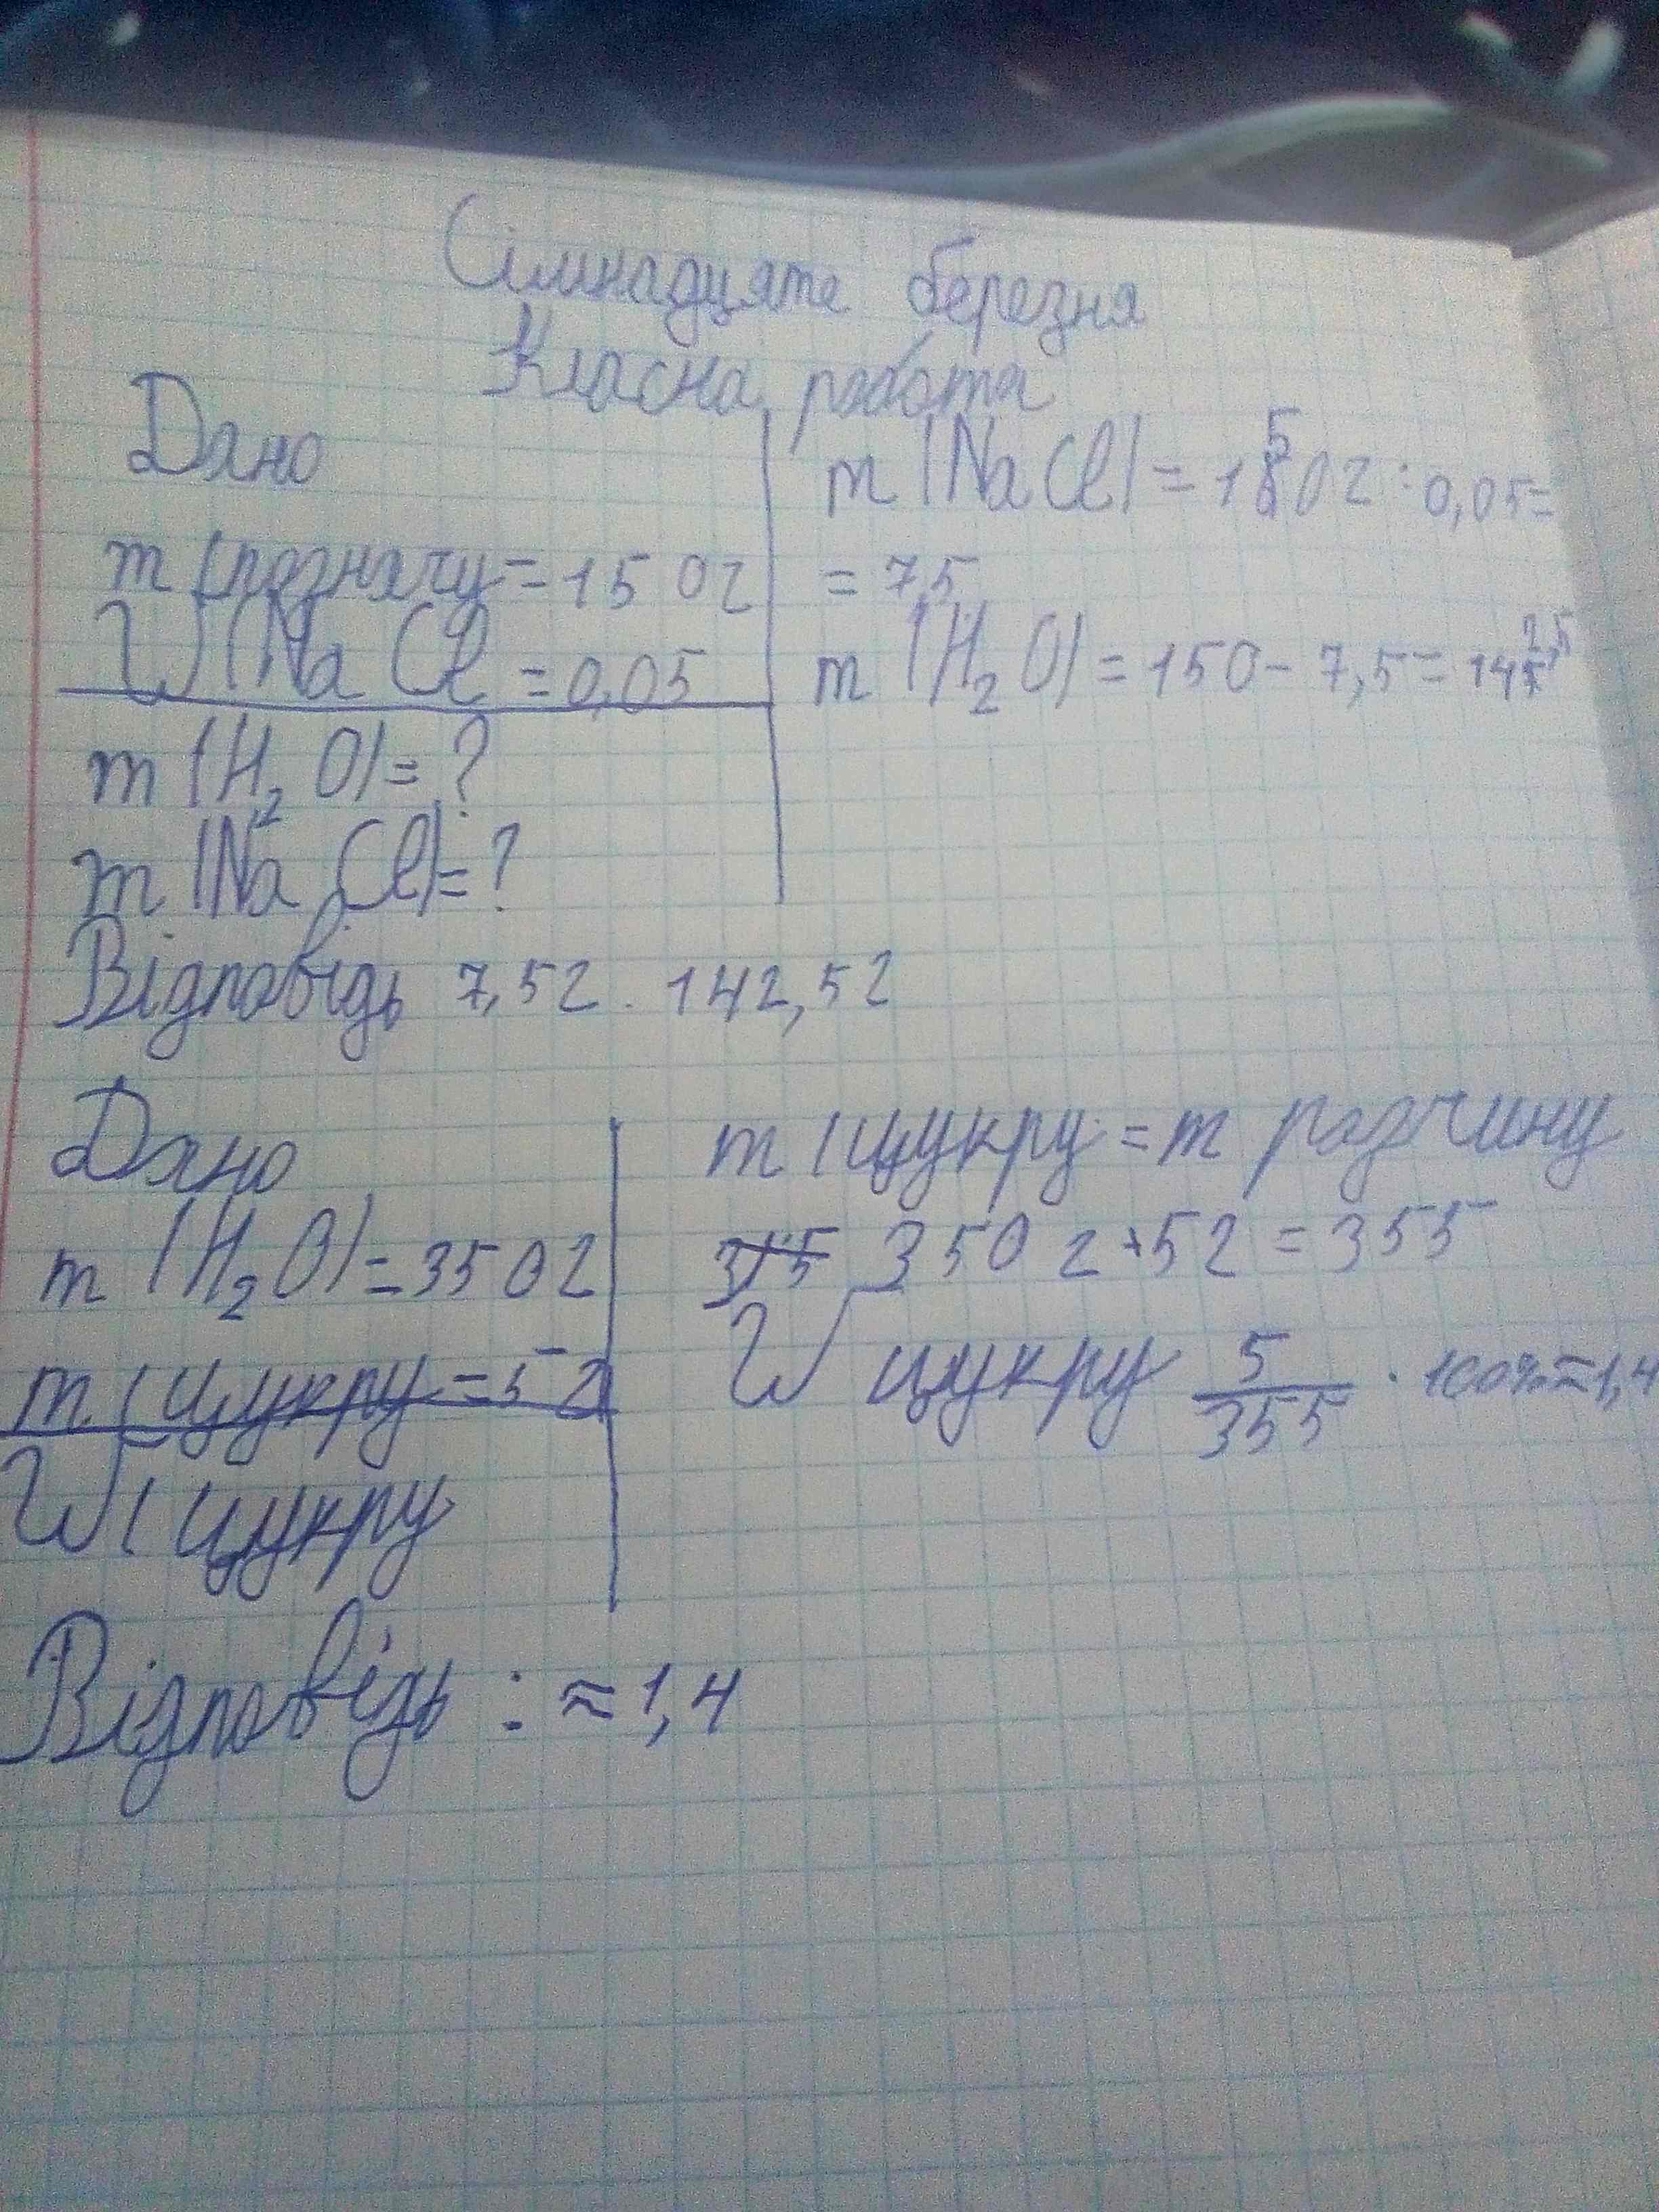 Сімнадцяте березня
Класна робота
Дано
m (рознчу = 150г
W(NaCl = 0,05
m (H₂O) = ?
m (NaCl) = ?
m (NaCl) = 150г · 0,05 =
= 7,5
m (H₂O) = 150 - 7,5 = 142,5
Відповідь 7,5г. 142,5г
Дано
m (H₂O) = 350г
m (цукру = 5г
W(цукру
m (цукру = m розчину
350г + 5г = 355
W цукру 5/355 · 100% ≈ 1,4
Відповідь : ≈ 1,4